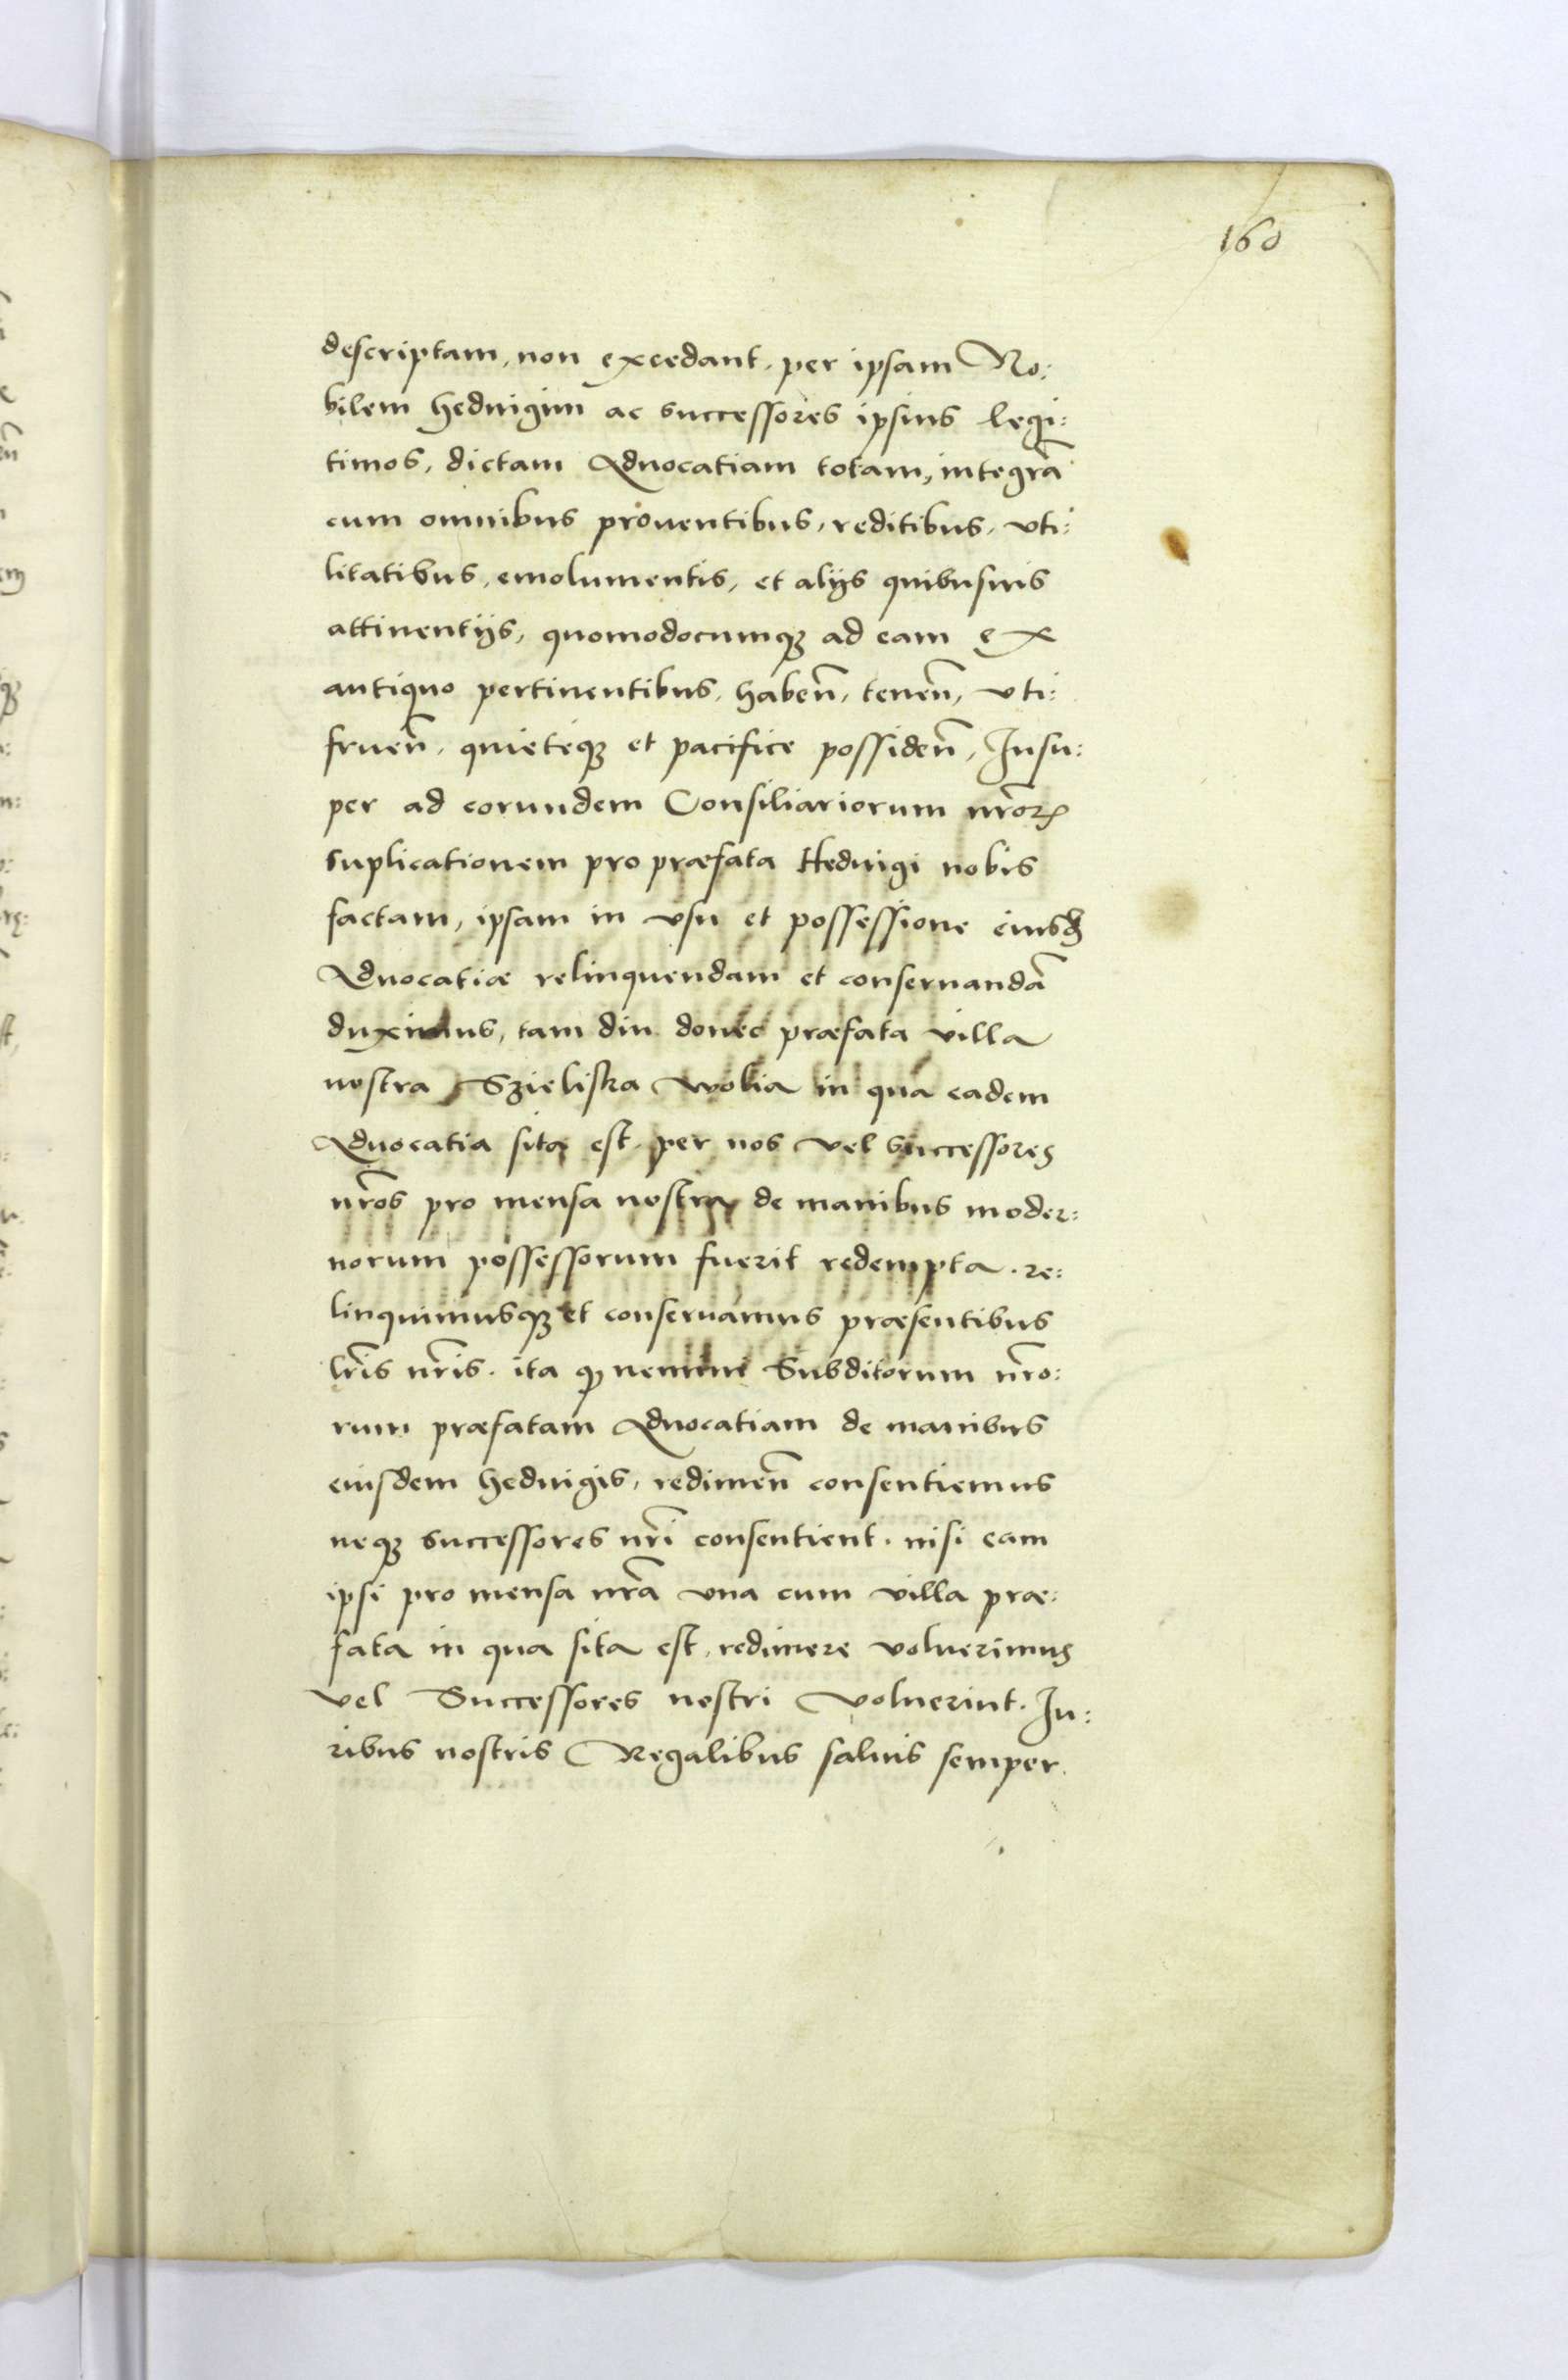 160
descriptam, non excedant, per ipsam No:
bilem heduigim ac successores ipsius legi:
timos, dictam Aduocatiam totam, integrã
cum omnibus prouentibus, reditibus, vti:
litatibus, emolumentis, et alijs quibusuis
attinentijs, quomodocumqꝫ ad eam ex
antiquo pertinentibus, habeñ, teneñ, vti:
frueñ, quieteqꝫ et pacifice possideñ, Insu:
per ad eorundem Consiliariorum nr̃oꝝ
suplicationem pro præfata Heduigi nobis
factam, ipsam in vsu et possessione eiusđ
Aduocatiæ relinquendam et conseruandã
duximus, tam diu donec præfata villa
nostra Szieliska wolia in qua eadem
Aduocatia sita est, per nos vel successores
nr̃os pro mensa nostra de manibus moder:
norum possessorum fuerit redempta. re:
linquimusqꝫ et conseruamus præsentibus
lr̃is nr̃is. ita ꝙ nemini Subditorum nr̃o:
rum præfatam Aduocatiam de manibus
eiusdem heduigis, redimeñ consentiemus
neqꝫ successores nr̃i consentient. nisi eam
ipsi pro mensa nr̃a vna cum villa præ:
fata in qua sita est, redimere voluerimus
vel Successores nostri voluerint. Iu:
ribus nostris Regalibus saluis semper.